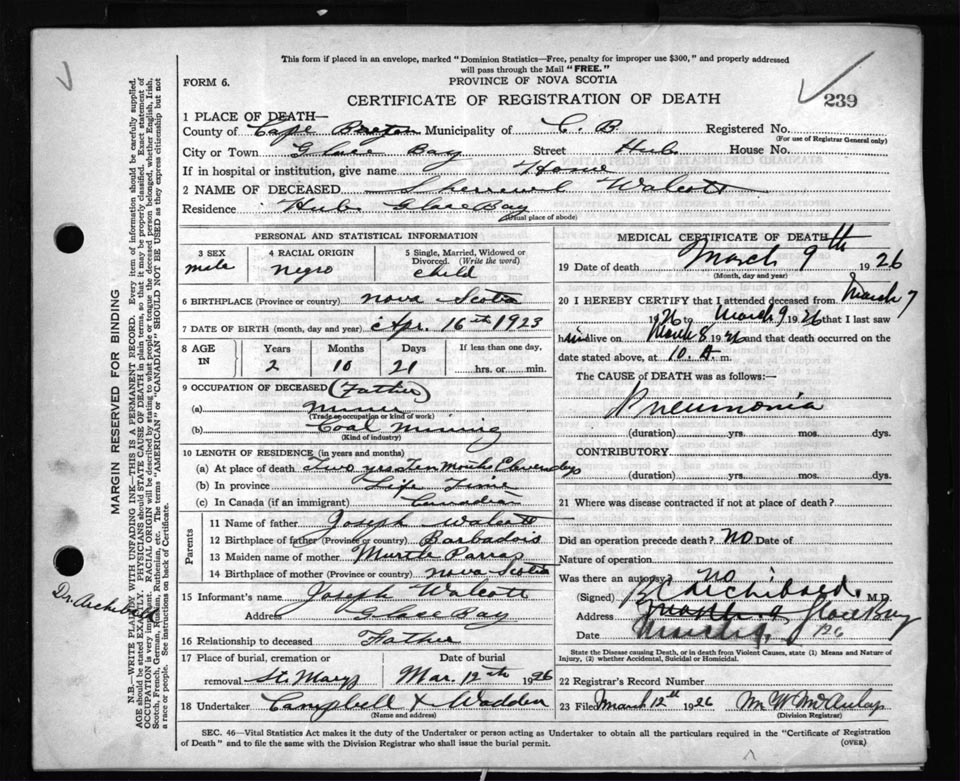 This form if placed in an envelope, marked "Dominion Statistics—Free, penalty for improper use $300," and properly addressed
will pass through the Mail "FREE."
FORM 6.
PROVINCE OF NOVA SCOTIA
CERTIFICATE OF REGISTRATION OF DEATH
239
1 PLACE OF DEATH—
County of Cape Breton Municipality of C. B. Registered No.
(For use of Registrar General only)
City or Town Glace Bay Street Hub House No.
If in hospital or institution, give name Home
2 NAME OF DECEASED Walcott
Residence Hub Glace Bay
(Usual place of abode)
PERSONAL AND STATISTICAL INFORMATION
3 SEX male
4 RACIAL ORIGIN negro
5 Single, Married, Widowed or Divorced. (Write the word) child
6 BIRTHPLACE (Province or country) Nova Scotia
7 DATE OF BIRTH (month, day and year) Apr. 16th 1923
8 AGE IN Years Months Days If less than one day.
2 10 21 hrs. or min.
9 OCCUPATION OF DECEASED (Father)
(a) Miner
(Trade or occupation or kind of work)
(b) Coal Mining
(Kind of industry)
10 LENGTH OF RESIDENCE (in years and months)
(a) At place of death two yrs Ten Months Eleven days
(b) In province Life Time
(c) In Canada (if an immigrant) Canadian
Parents
11 Name of father Joseph Walcott
12 Birthplace of father (Province or country) Barbados
13 Maiden name of mother Myrtle
14 Birthplace of mother (Province or country) Nova Scotia
15 Informant's name Joseph Walcott
Address Glace Bay
16 Relationship to deceased Father
17 Place of burial, cremation or removal St. Marys
Date of burial Mar. 12th 1926
18 Undertaker Campbell & Wadden
(Name and address)
MEDICAL CERTIFICATE OF DEATH
19 Date of death March 9th 1926
(Month, day and year)
20 I HEREBY CERTIFY that I attended deceased from March 7
1926 to March 9 1926 that I last saw
him alive on March 8 1926 and that death occurred on the
date stated above, at 10. A. m.
The CAUSE of DEATH was as follows:—
Pneumonia
(duration) yrs. mos. dys.
CONTRIBUTORY
(duration) yrs. mos. dys.
21 Where was disease contracted if not at place of death?
Did an operation precede death? NO Date of
Nature of operation
Was there an autopsy? no
(Signed) Archibald. M.D.
Address Glace Bay
Date March 9. 1926
State the Disease causing Death, or in death from Violent Causes, state (1) Means and Nature of
Injury, (2) whether Accidental, Suicidal or Homicidal.
22 Registrar's Record Number
23 Filed March 12th 1926
(Division Registrar)
SEC. 46—Vital Statistics Act makes it the duty of the Undertaker or person acting as Undertaker to obtain all the particulars required in the "Certificate of Registration
of Death" and to file the same with the Division Registrar who shall issue the burial permit.
(OVER)
MARGIN RESERVED FOR BINDING
N.B.—WRITE PLAINLY WITH UNFADING INK—THIS IS A PERMANENT RECORD. Every item of information should be carefully supplied.
AGE should be stated EXACTLY. PHYSICIANS should STATE CAUSE OF DEATH in plain terms, so that it may be properly classified. Exact statement of
OCCUPATION is very important. RACIAL ORIGIN will be described by stating to what people or tongue the deceased person belonged, whether English, Irish,
Scotch, French, German, Russian, Ruthenian, etc. The terms "AMERICAN" or "CANADIAN" SHOULD NOT BE USED as they express citizenship but not
a race or people. See instructions on back of Certificate.
Dr. Archibald